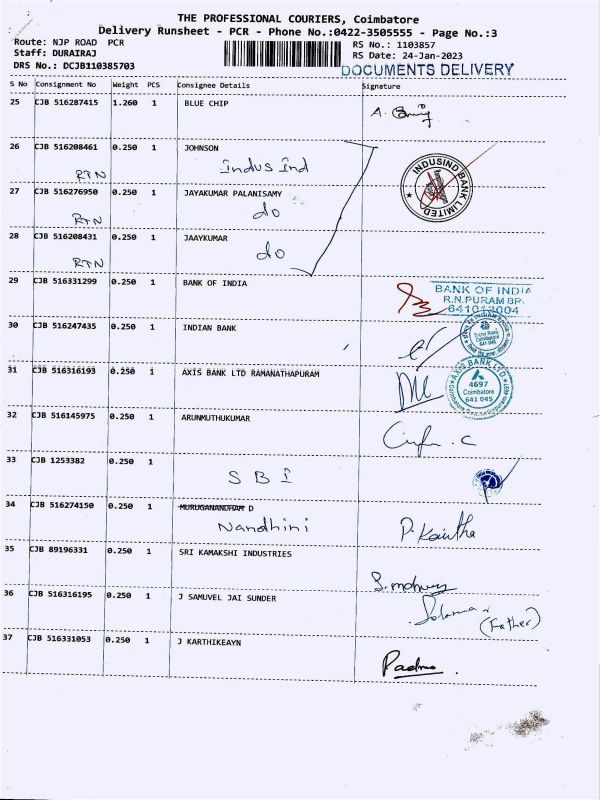 THE PROFESSIONAL COURIERS, Coimbatore
Delivery Runsheet - PCR - Phone No.:0422-3505555 - Page No.:3
Route: NJP ROAD PCR
RS No.: 1103857
Staff: DURAIRAJ
RS Date: 24-Jan-2023
DRS No.: DCJB110385703
DOCUMENTS DELIVERY
S No Consignment No Weight PCS Consignee Details Signature
25 CJB 516287415 1.260 1 BLUE CHIP
26 CJB 516208461 0.250 1 JOHNSON
RTN Indus Ind
INDUSIND BANK LIMITED
27 CJB 516276950 0.250 1 JAYAKUMAR PALANISAMY
RTN do
28 CJB 516208431 0.250 1 JAAYKUMAR
RTN do
29 CJB 516331299 0.250 1 BANK OF INDIA
BANK OF INDIA
R.N.PURAM BR.
30 CJB 516247435 0.250 1 INDIAN BANK
31 CJB 516316193 0.250 1 AXIS BANK LTD RAMANATHAPURAM
AXIS BANK LTD
4697
Coimbatore
641 045
32 CJB 516145975 0.250 1 ARUNMUTHUKUMAR
33 CJB 1253382 0.250 1
SBI
34 CJB 516274150 0.250 1 MURUGANANDHAM D
Nandhini
P. Kavitha
35 CJB 89196331 0.250 1 SRI KAMAKSHI INDUSTRIES
36 CJB 516316195 0.250 1 J SAMUVEL JAI SUNDER
(Father)
37 CJB 516331053 0.250 1 J KARTHIKEAYN
Padma.